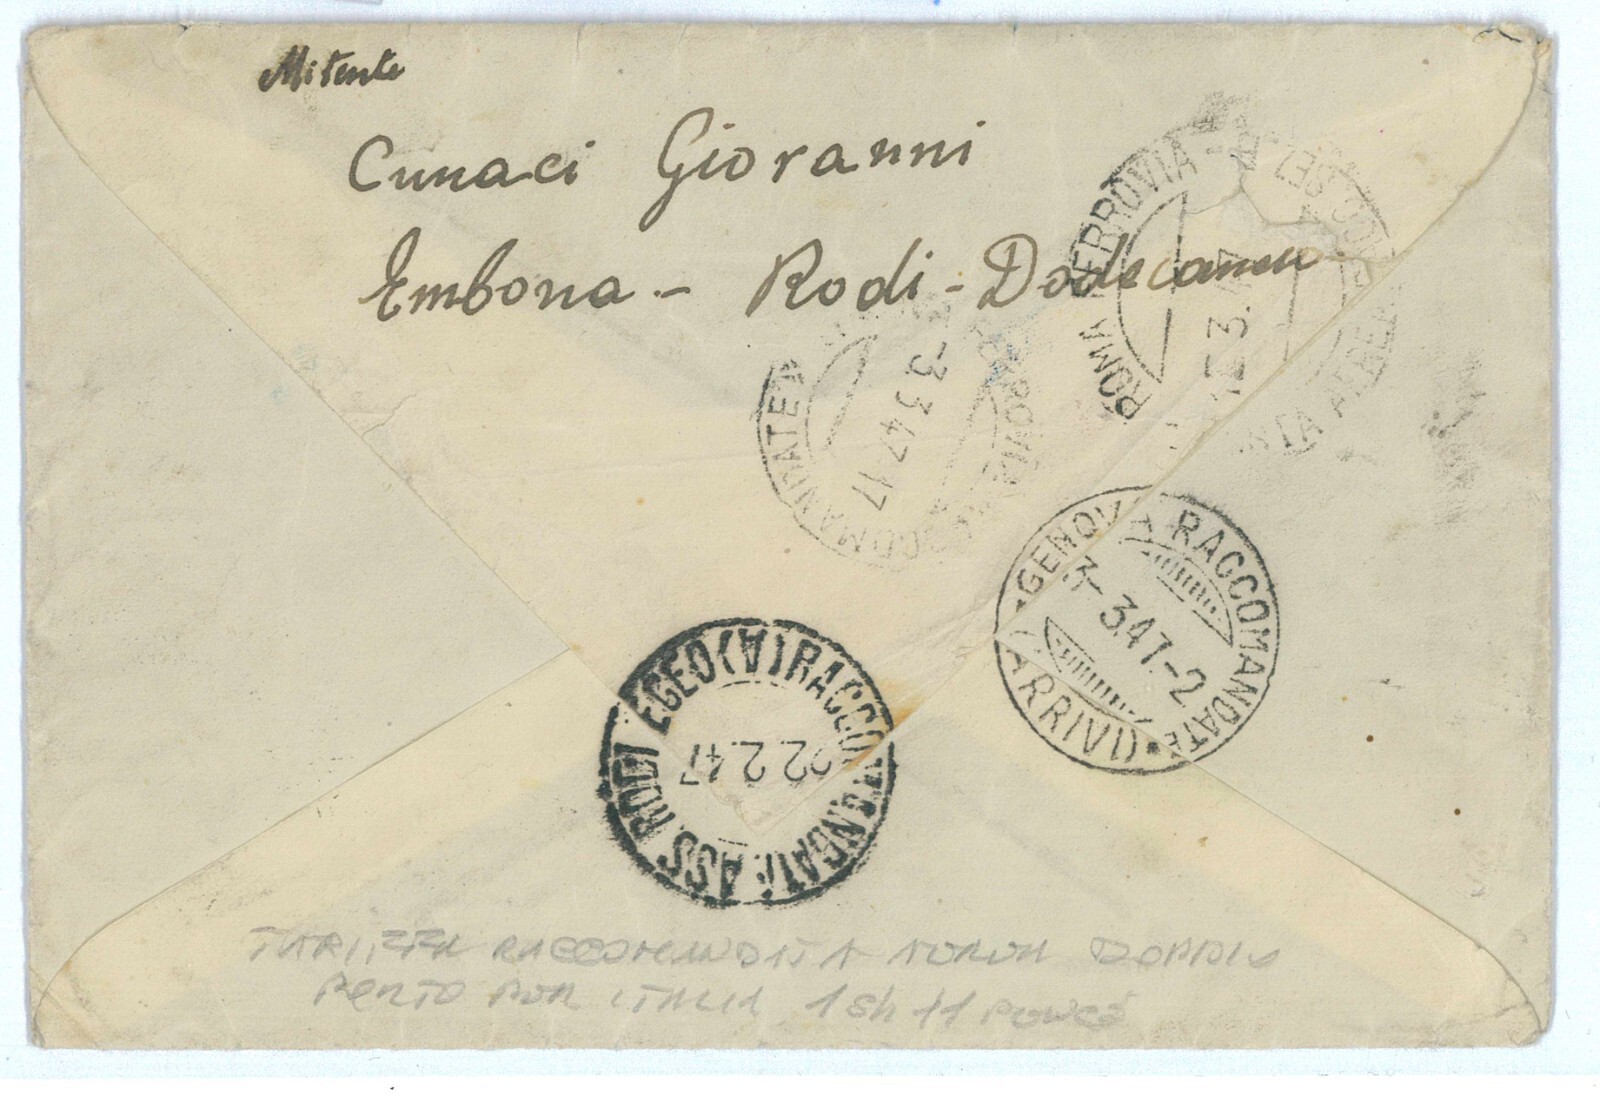 Mitente
Cunaci Giovanni
Embona - Rodi - Dodecaneso
ROMA FERROVIA
POSTA AEREA
RACCOMANDATE
3 3 47-17
GENOVA RACCOMANDATE
3- 3.47.-2
ARRIVO
RODI EGEO (A) RACCOMANDATE ASS.
22.2.47
TARIFFA RACCOMANDATA AEREA DOPPIO
PORTO PER ITALIA 1 Sh 11 PENCE